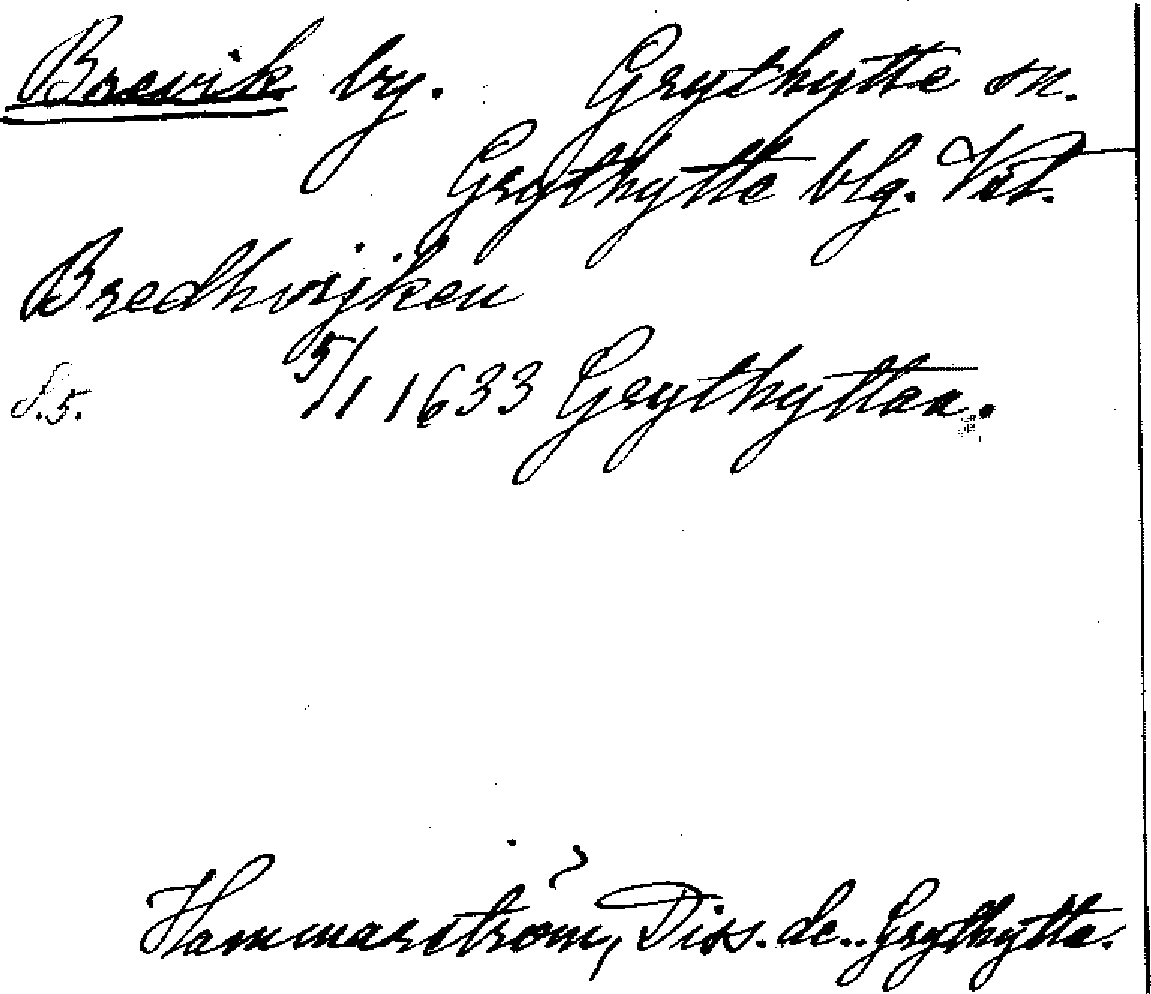 Brevik by. Grythytte sn.
Grythytte blg. Vstm.
Bredhvijken
S.5. 5/1 1633 Grythyttan.
Hammarström, Diss. de.. Grythytta.